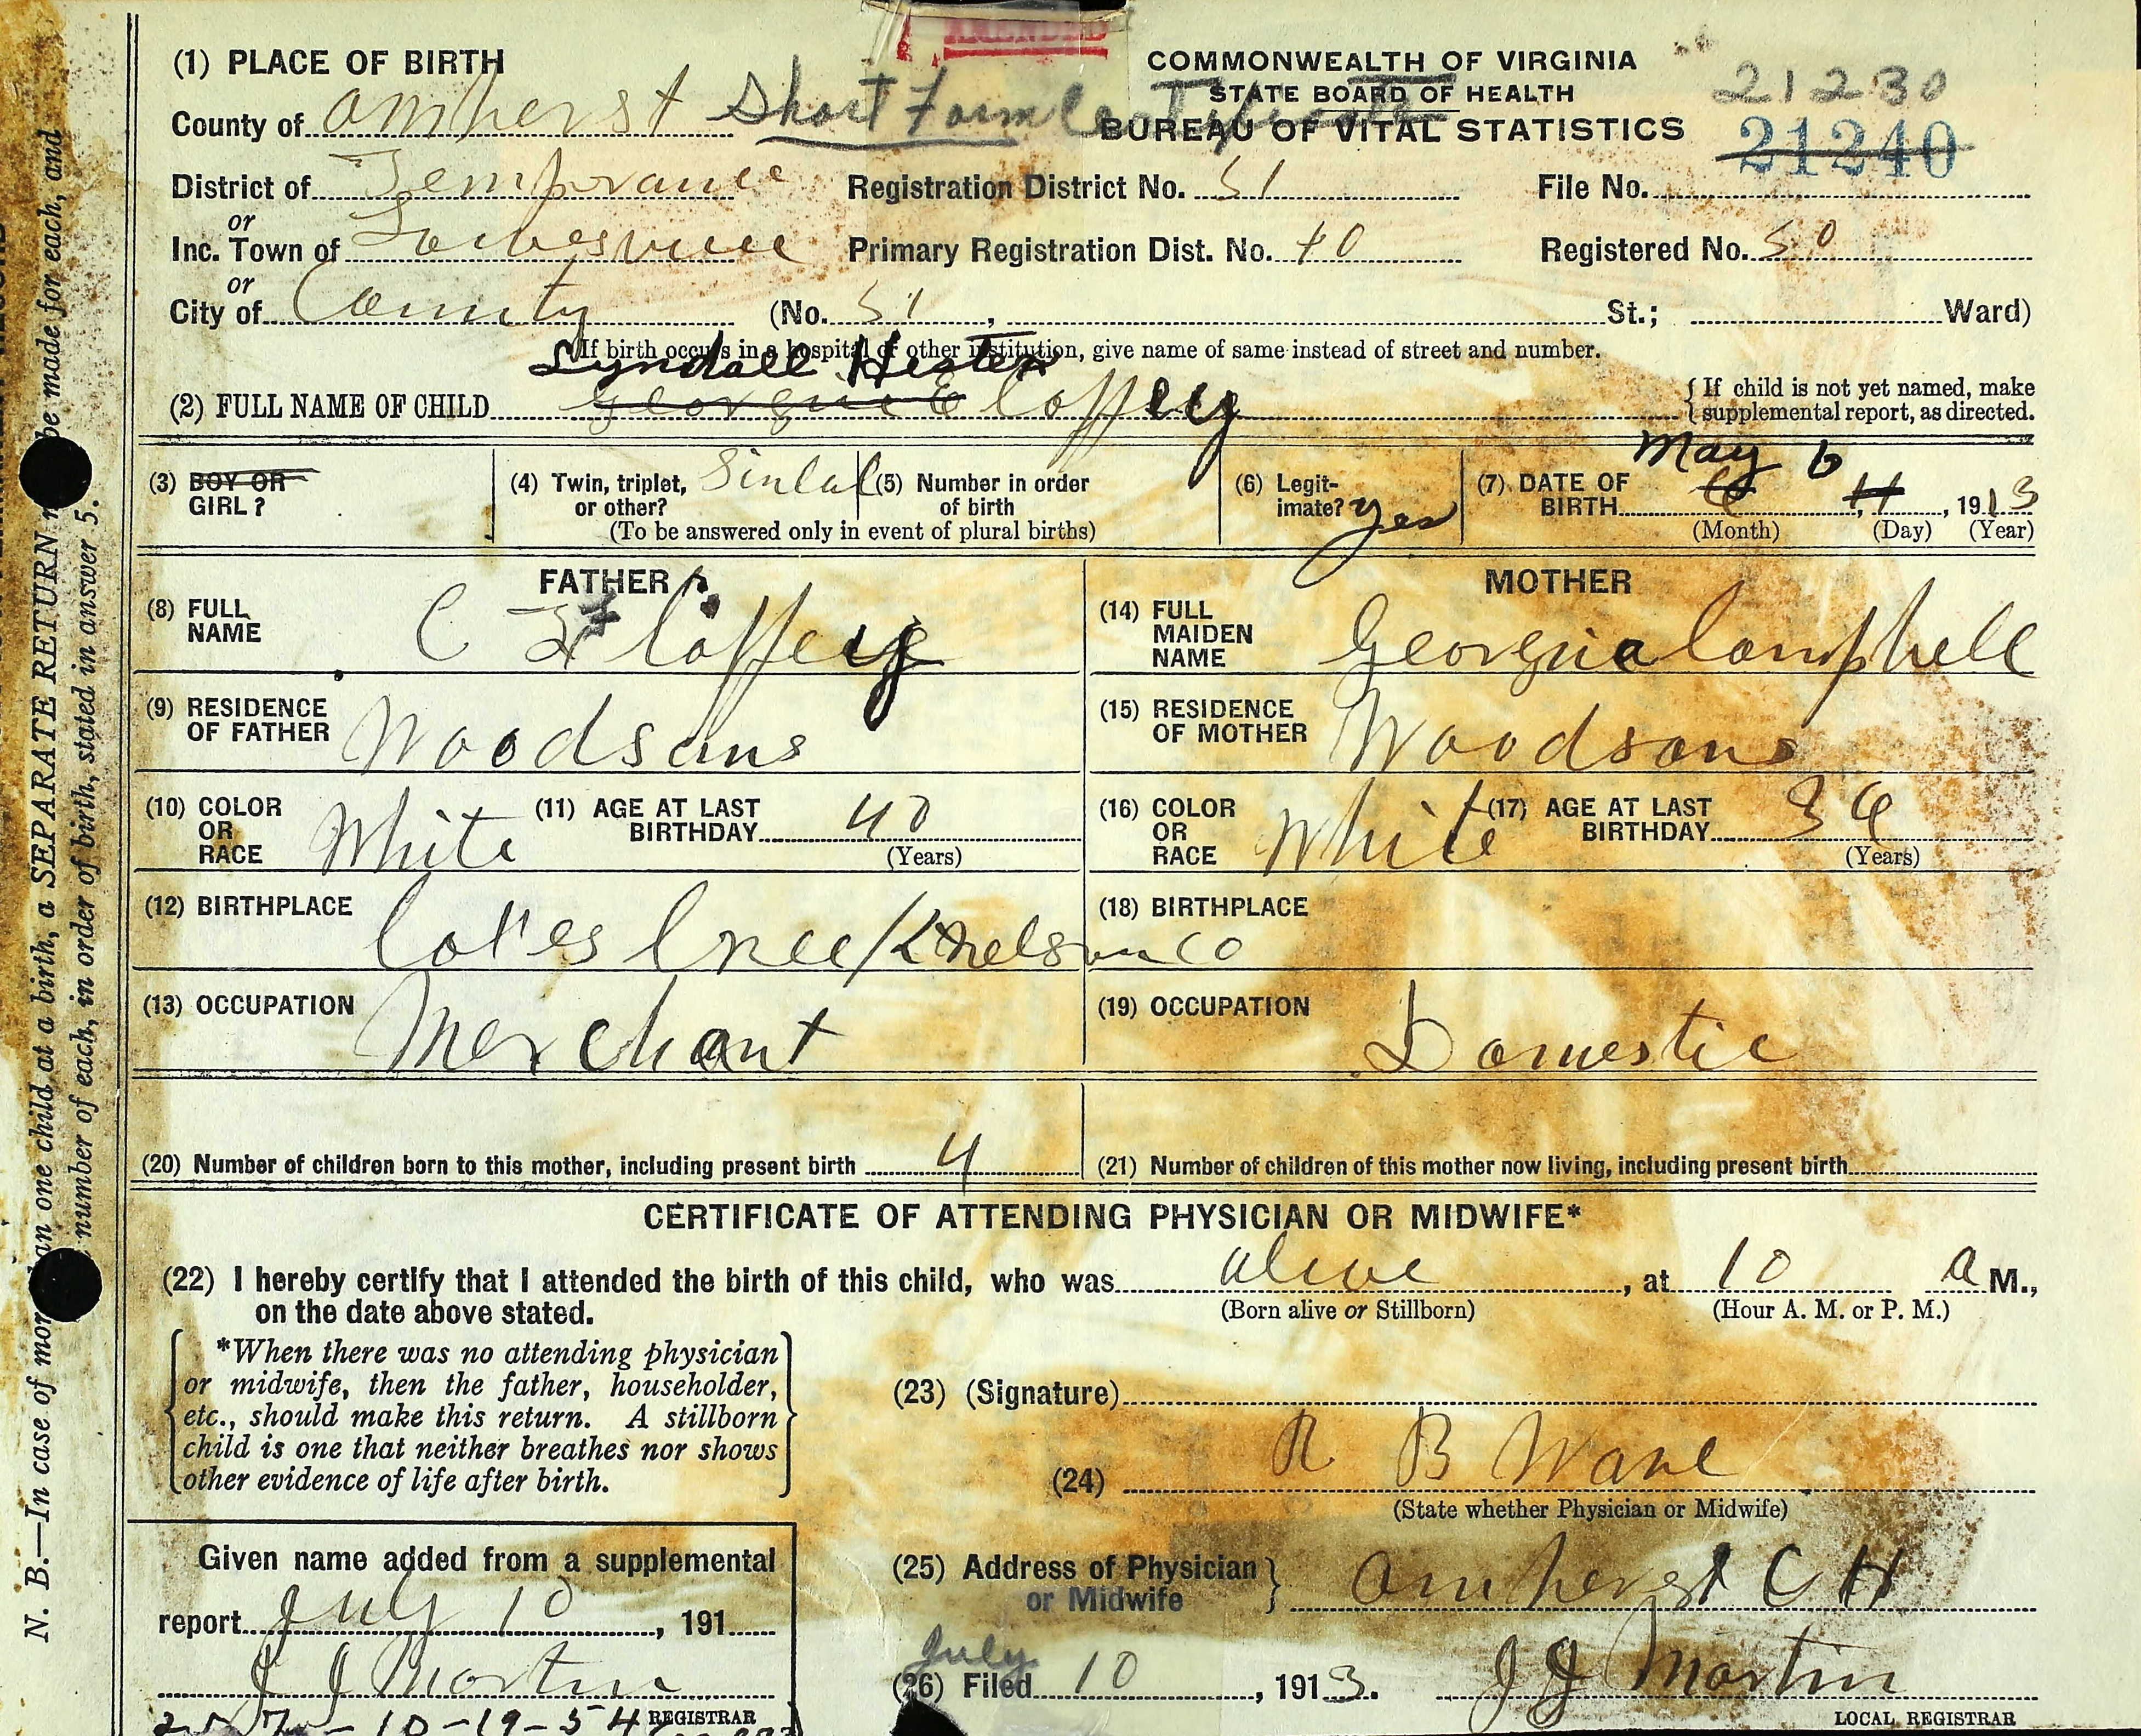 AMENDED
(1) PLACE OF BIRTH
COMMONWEALTH OF VIRGINIA
STATE BOARD OF HEALTH
BUREAU OF VITAL STATISTICS
21230
21240
County of Amherst Short Form
District of Temprance Registration District No. 51 File No.
or
Inc. Town of Primary Registration Dist. No. 40 Registered No. 50
or
City of County (No. 51, St.; Ward)
If birth occurs in a hospital or other institution, give name of same instead of street and number.
Lyndall Hester
(2) FULL NAME OF CHILD Georgia E Coffey
{ If child is not yet named, make
supplemental report, as directed.
(3) BOY OR
GIRL?
(4) Twin, triplet,
or other?
(5) Number in order
of birth
(To be answered only in event of plural births)
(6) Legit-
imate? yes
May 6
(7) DATE OF
BIRTH 6, 11, 1913
(Month) (Day) (Year)
FATHER
(8) FULL
NAME
C Coffey
(9) RESIDENCE
OF FATHER
Woodsons
(10) COLOR
OR
RACE
White
(11) AGE AT LAST
BIRTHDAY 40
(Years)
(12) BIRTHPLACE
Nelson Co
(13) OCCUPATION
Merchant
MOTHER
(14) FULL
MAIDEN
NAME
Georgia Campbell
(15) RESIDENCE
OF MOTHER
Woodsons
(16) COLOR
OR
RACE
White
(17) AGE AT LAST
BIRTHDAY 36
(Years)
(18) BIRTHPLACE
(19) OCCUPATION
Domestic
(20) Number of children born to this mother, including present birth 4
(21) Number of children of this mother now living, including present birth
CERTIFICATE OF ATTENDING PHYSICIAN OR MIDWIFE*
(22) I hereby certify that I attended the birth of this child, who was alive, at 10 a M.,
on the date above stated. (Born alive or Stillborn) (Hour A. M. or P. M.)
*When there was no attending physician
or midwife, then the father, householder,
etc., should make this return. A stillborn
child is one that neither breathes nor shows
other evidence of life after birth.
(23) (Signature)
(24) R B Ware
(State whether Physician or Midwife)
Given name added from a supplemental
report July 10, 191
J J Martin
REGISTRAR
10-19-54
(25) Address of Physician
or Midwife } Amherst C H
July
(26) Filed 10, 1913. J J Martin
LOCAL REGISTRAR
N. B.—In case of more than one child at a birth, a SEPARATE RETURN be made for each, and
number of each, in order of birth, stated in answer 5.